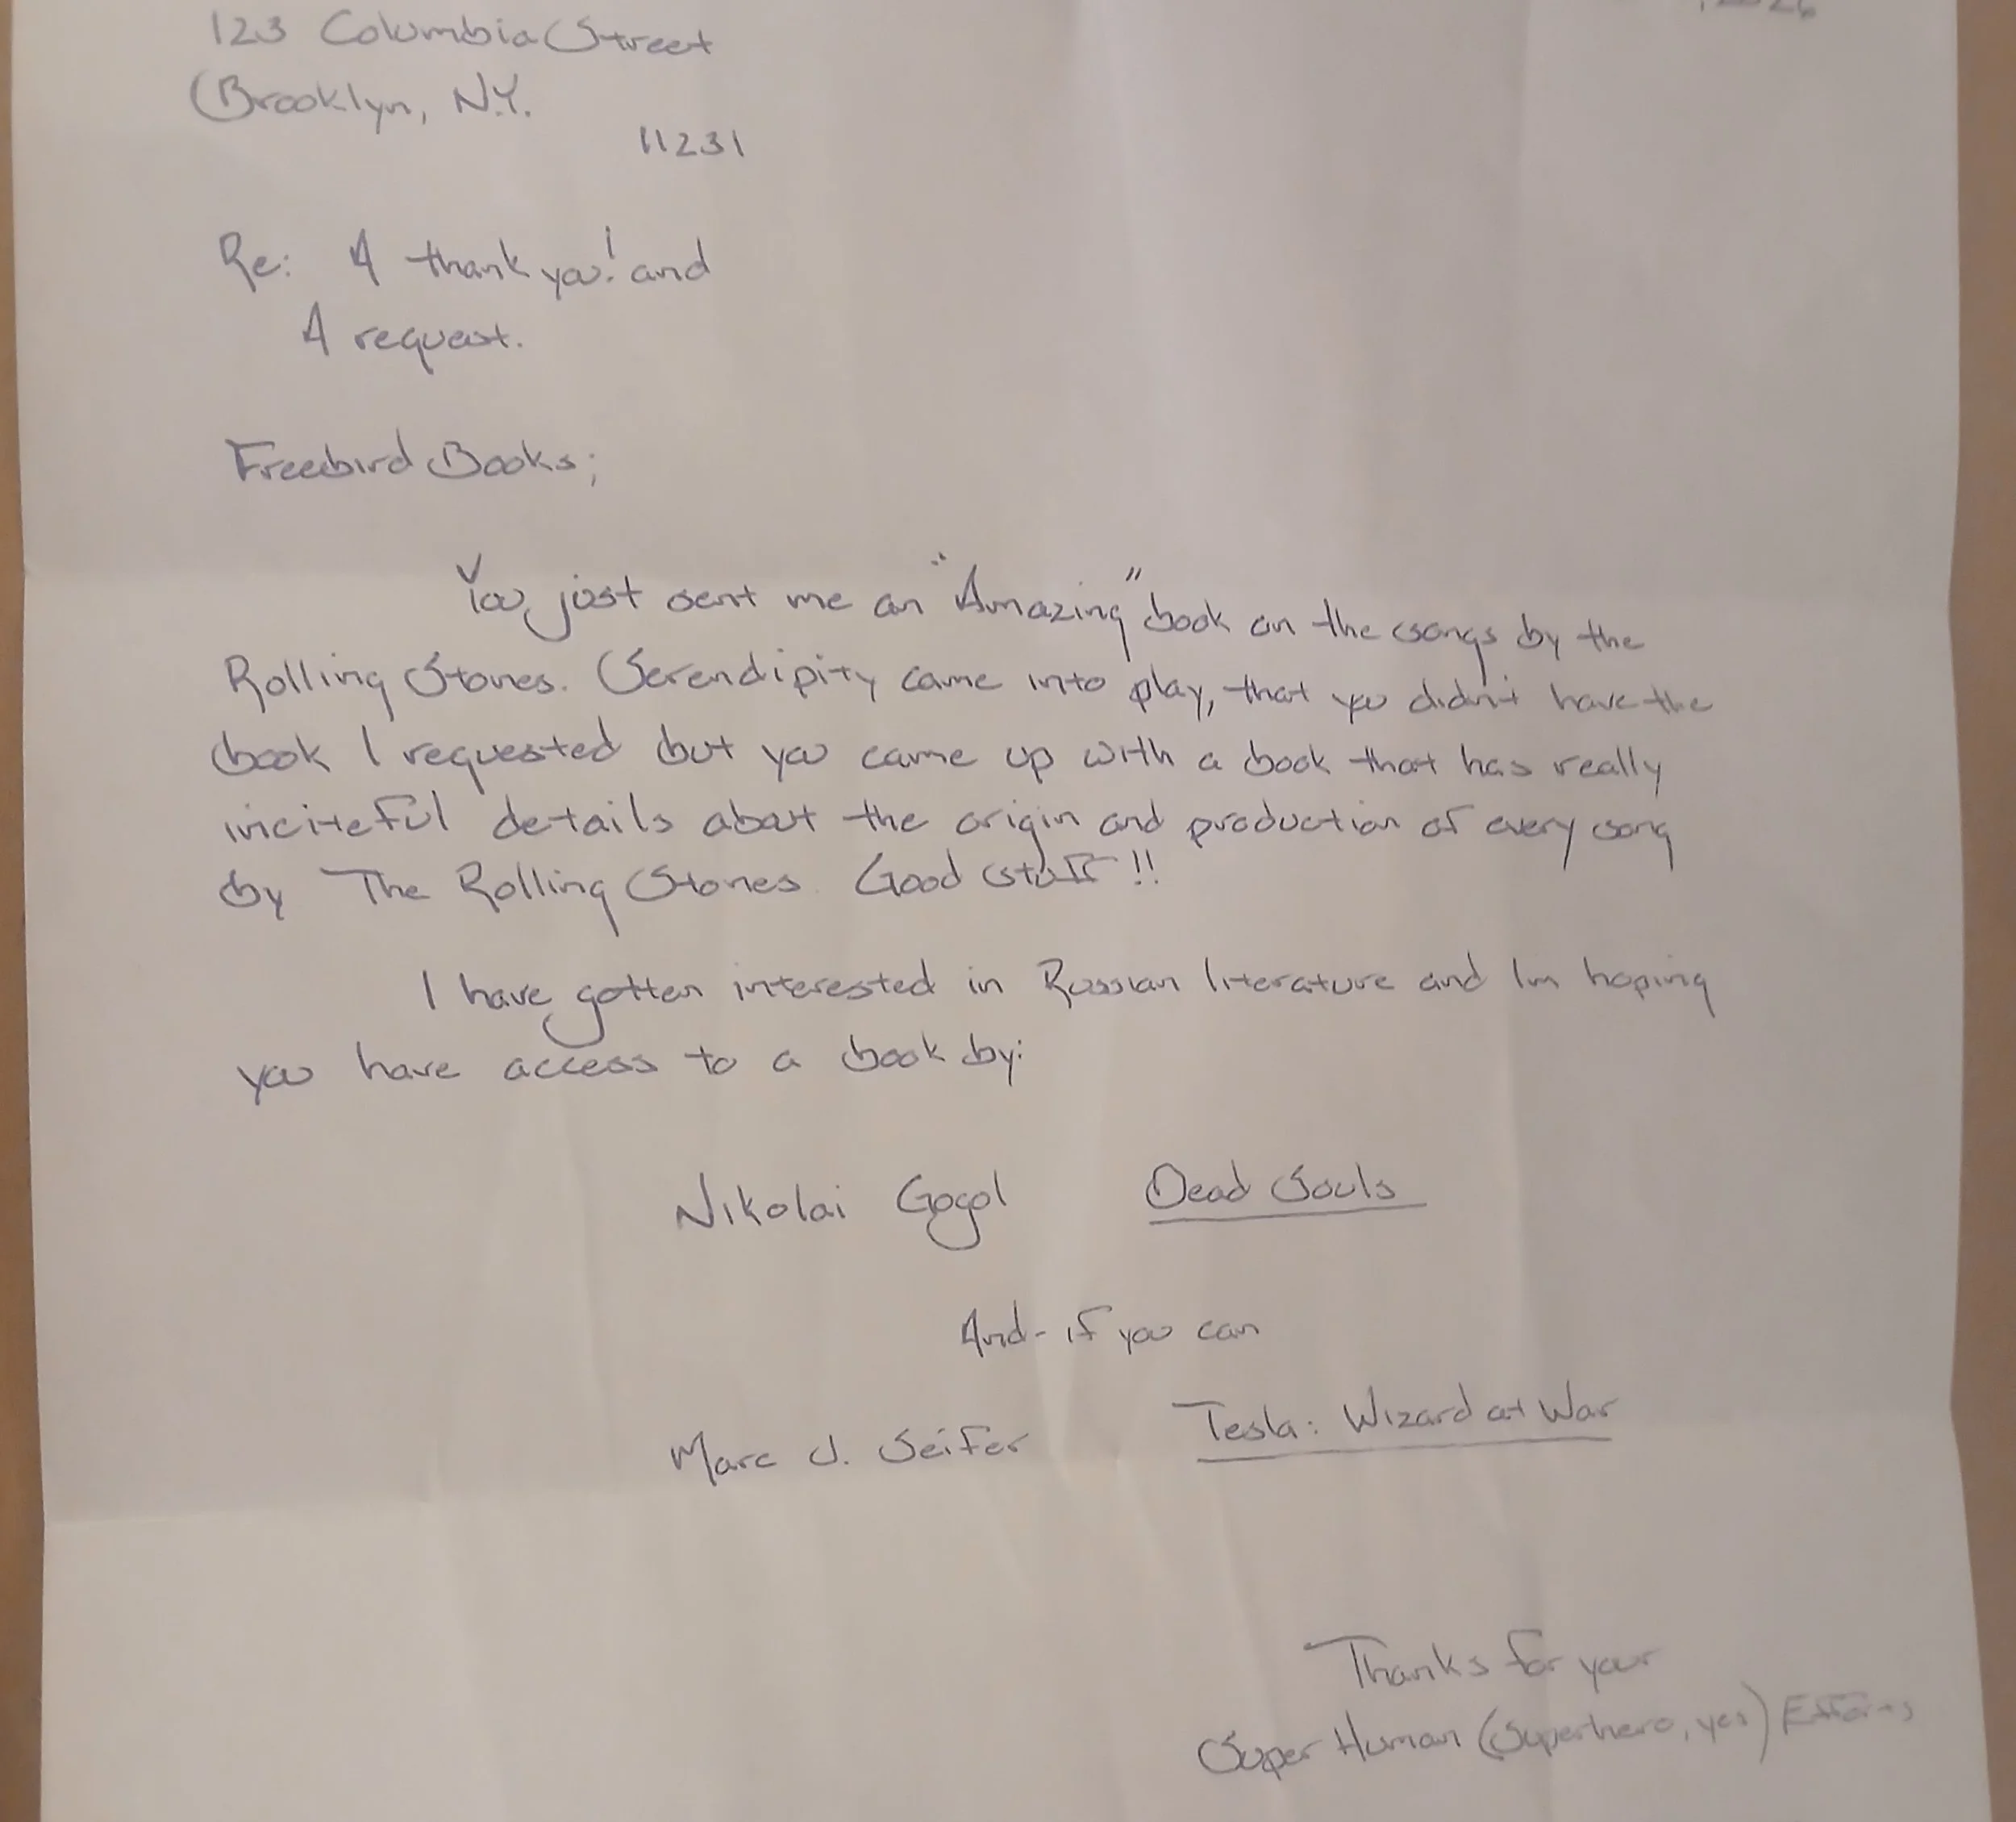 123 Columbia Street
Brooklyn, N.Y.
11231
Re: A thank you! and
A request.
Freebird Books;
You just sent me an "Amazing" book on the songs by the
Rolling Stones. Serendipity came into play, that you didn't have the
book I requested but you came up with a book that has really
inciteful details about the origin and production of every song
by The Rolling Stones. Good stuff!!
I have gotten interested in Russian literature and Im hoping
you have access to a book by:
Nikolai Gogol Dead Souls
And - if you can
Marc J. Seifer Tesla: Wizard at War
Thanks for your
Super Human (Superhero, yes) Efforts